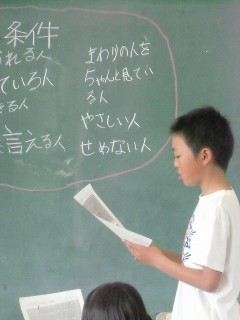 条件
れる人
ている人
きる人
言える人
まわりの人を
ちゃんと見てい
る人
やさしい人
せめない人